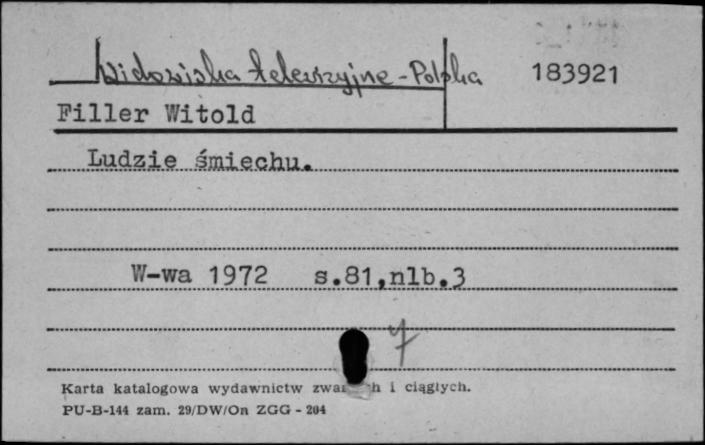 Widowiska telewizyjne - Polska
183921
Filler Witold
Ludzie śmiechu.
W-wa 1972 s.81,nlb.3
7
Karta katalogowa wydawnictw i ciągłych.
PU-B-144 zam. 29/DW/On ZGG - 204